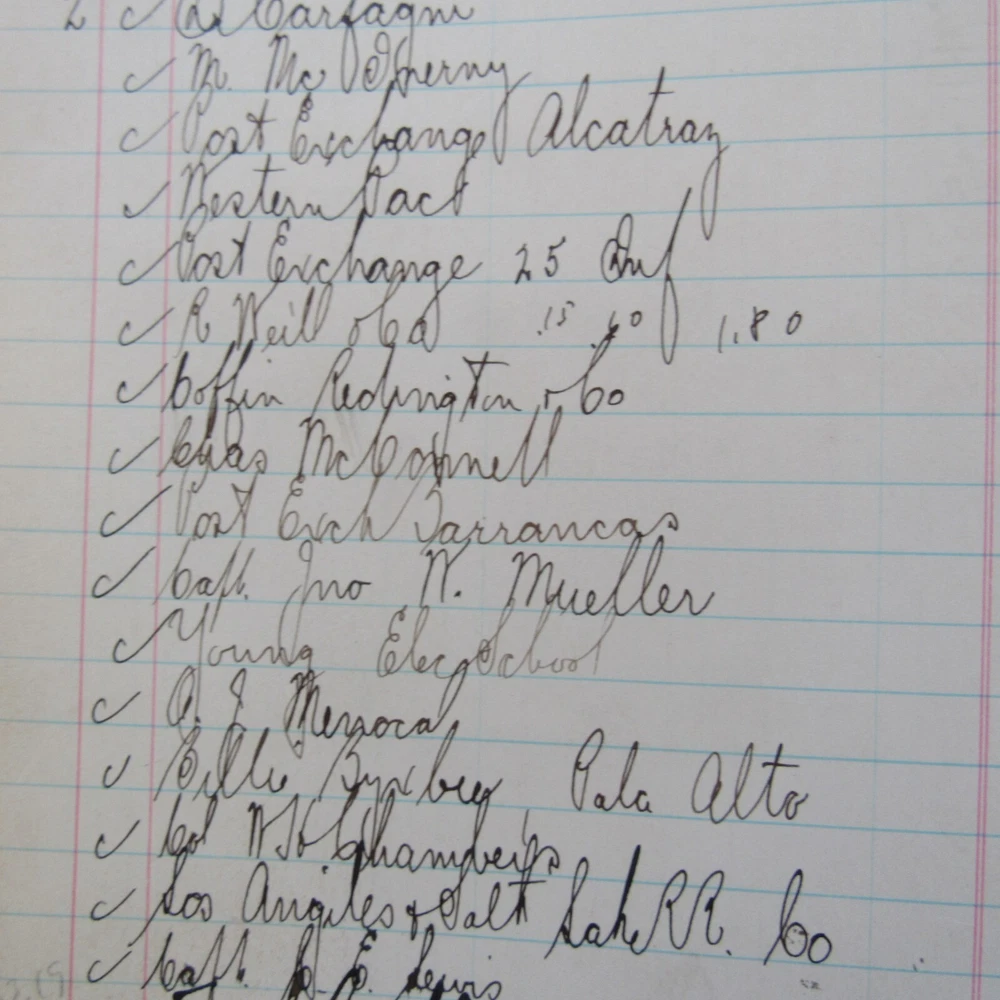 2 Carfagni
M. McInerny
Post Exchange Alcatraz
Western Pact
Post Exchange 25 Inf
R Weill & Co .15 .10 1.80
Coffin Redington & Co
Chas McConnell
Post Exch Barrancas
Capt. Jno W. Mueller
Young Elec School
A. J. Menocal
Billie Byxbey Pala Alto
Col W H Chambers
Los Angiles & Salt Lake RR. Co
Capt. E. Lewis